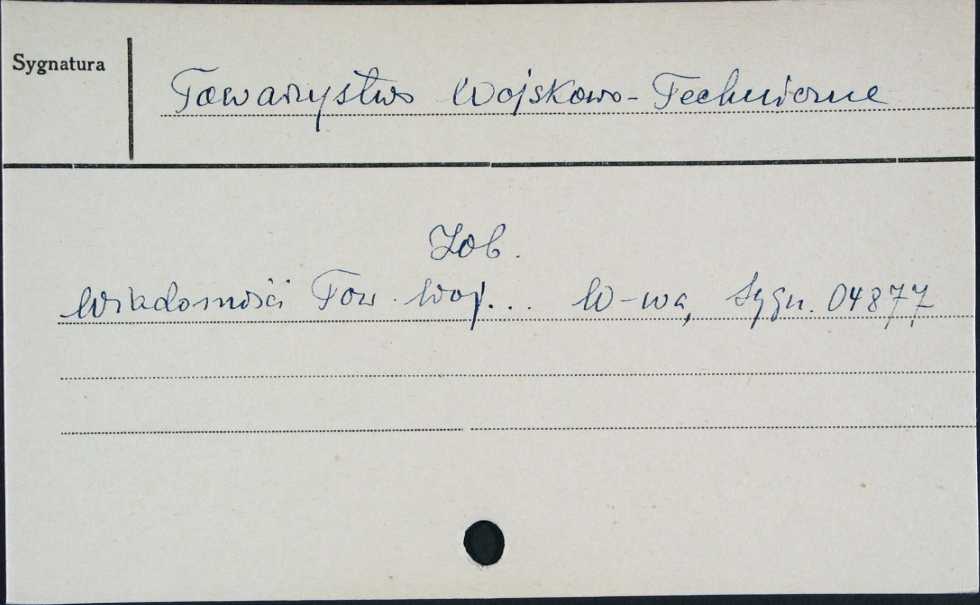 Sygnatura
Towarzystwo Wojskowo-Techniczne
Zob.
Wiadomości Tow. Woj... W-wa, Sygn. 04877